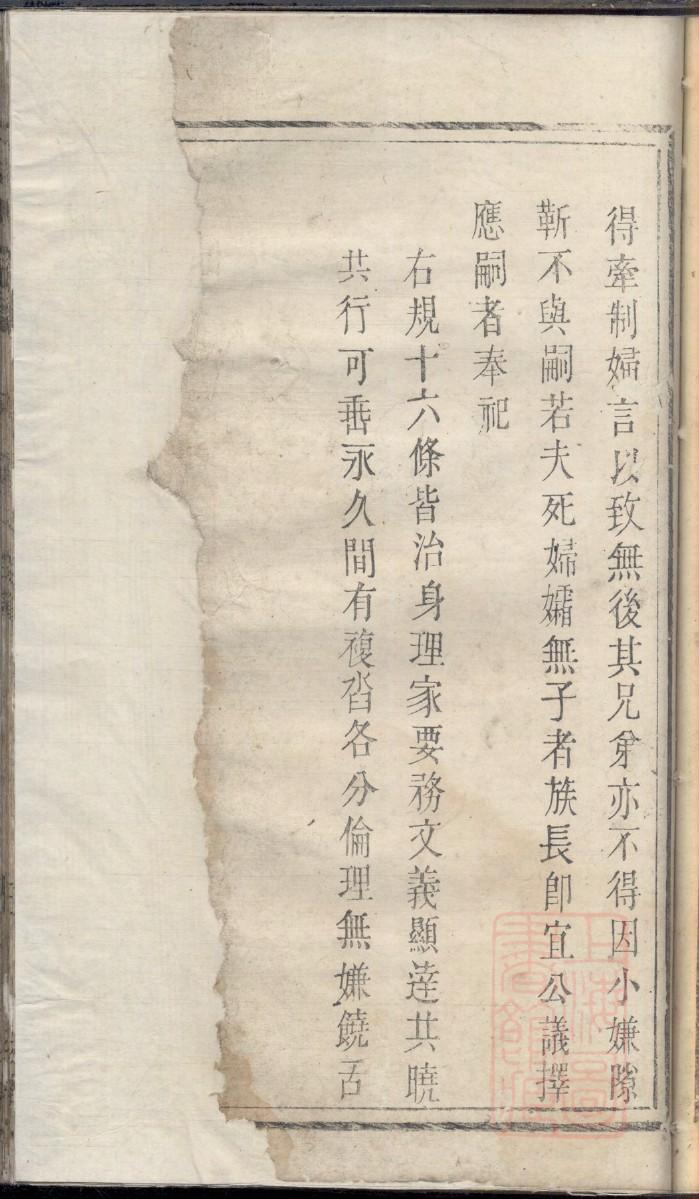 得牽制婦言以致無後其兄弟亦不得因小嫌隙
靳不與嗣若夫死婦孀無子者族長即宜公議擇
應嗣者奉祀
右規十六條皆治身理家要務文義顯達共曉
共行可垂永久間有複沓各分倫理無嫌饒舌